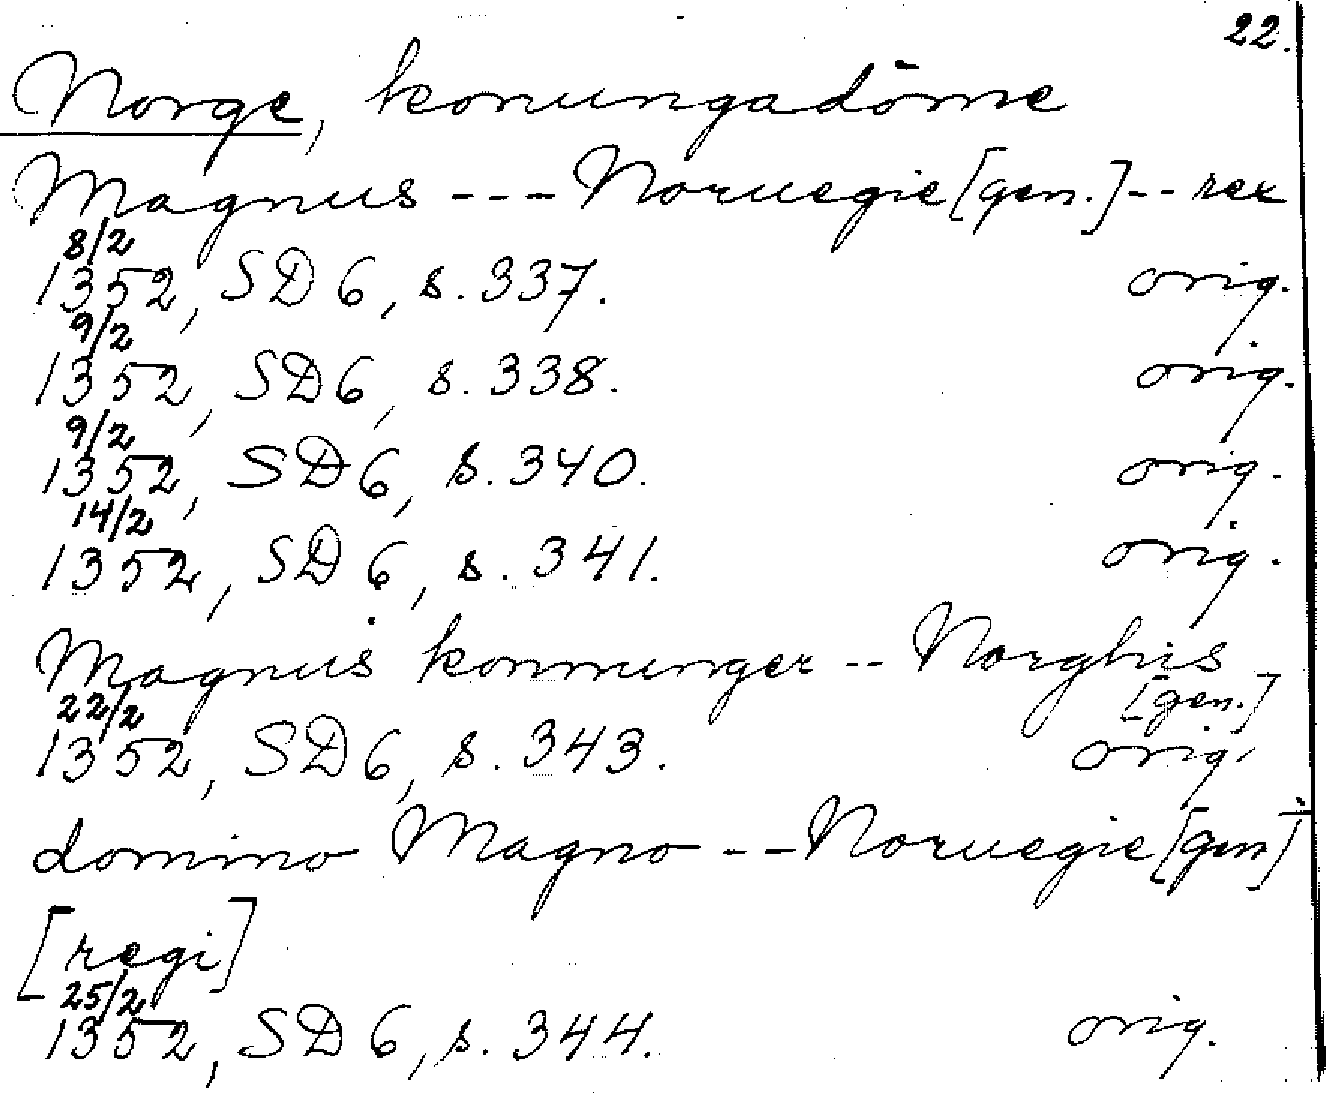 22.
Norge, konungadöme
Magnus --- Noruegie [gen.] -- rex
8/2
1352, SD 6, s. 337. orig.
9/2
1352, SD 6, s. 338. orig.
9/2
1352, SD 6, s. 340. orig.
14/2
1352, SD 6, s. 341. orig.
Magnus konnunger -- Norghis
[gen.]
22/2
1352, SD 6, s. 343. orig.
domino Magno -- Noruegie [gen]
[regi]
25/2
1352, SD 6, s. 344. orig.